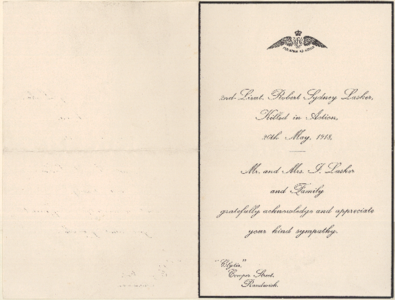 2nd Lieut. Robert Sydney Lasker,
Killed in Action,
20th May, 1918.
Mr. and Mrs. I. Lasker
and Family
gratefully acknowledge and appreciate
your kind sympathy.
Cooper Street,
Randwick.